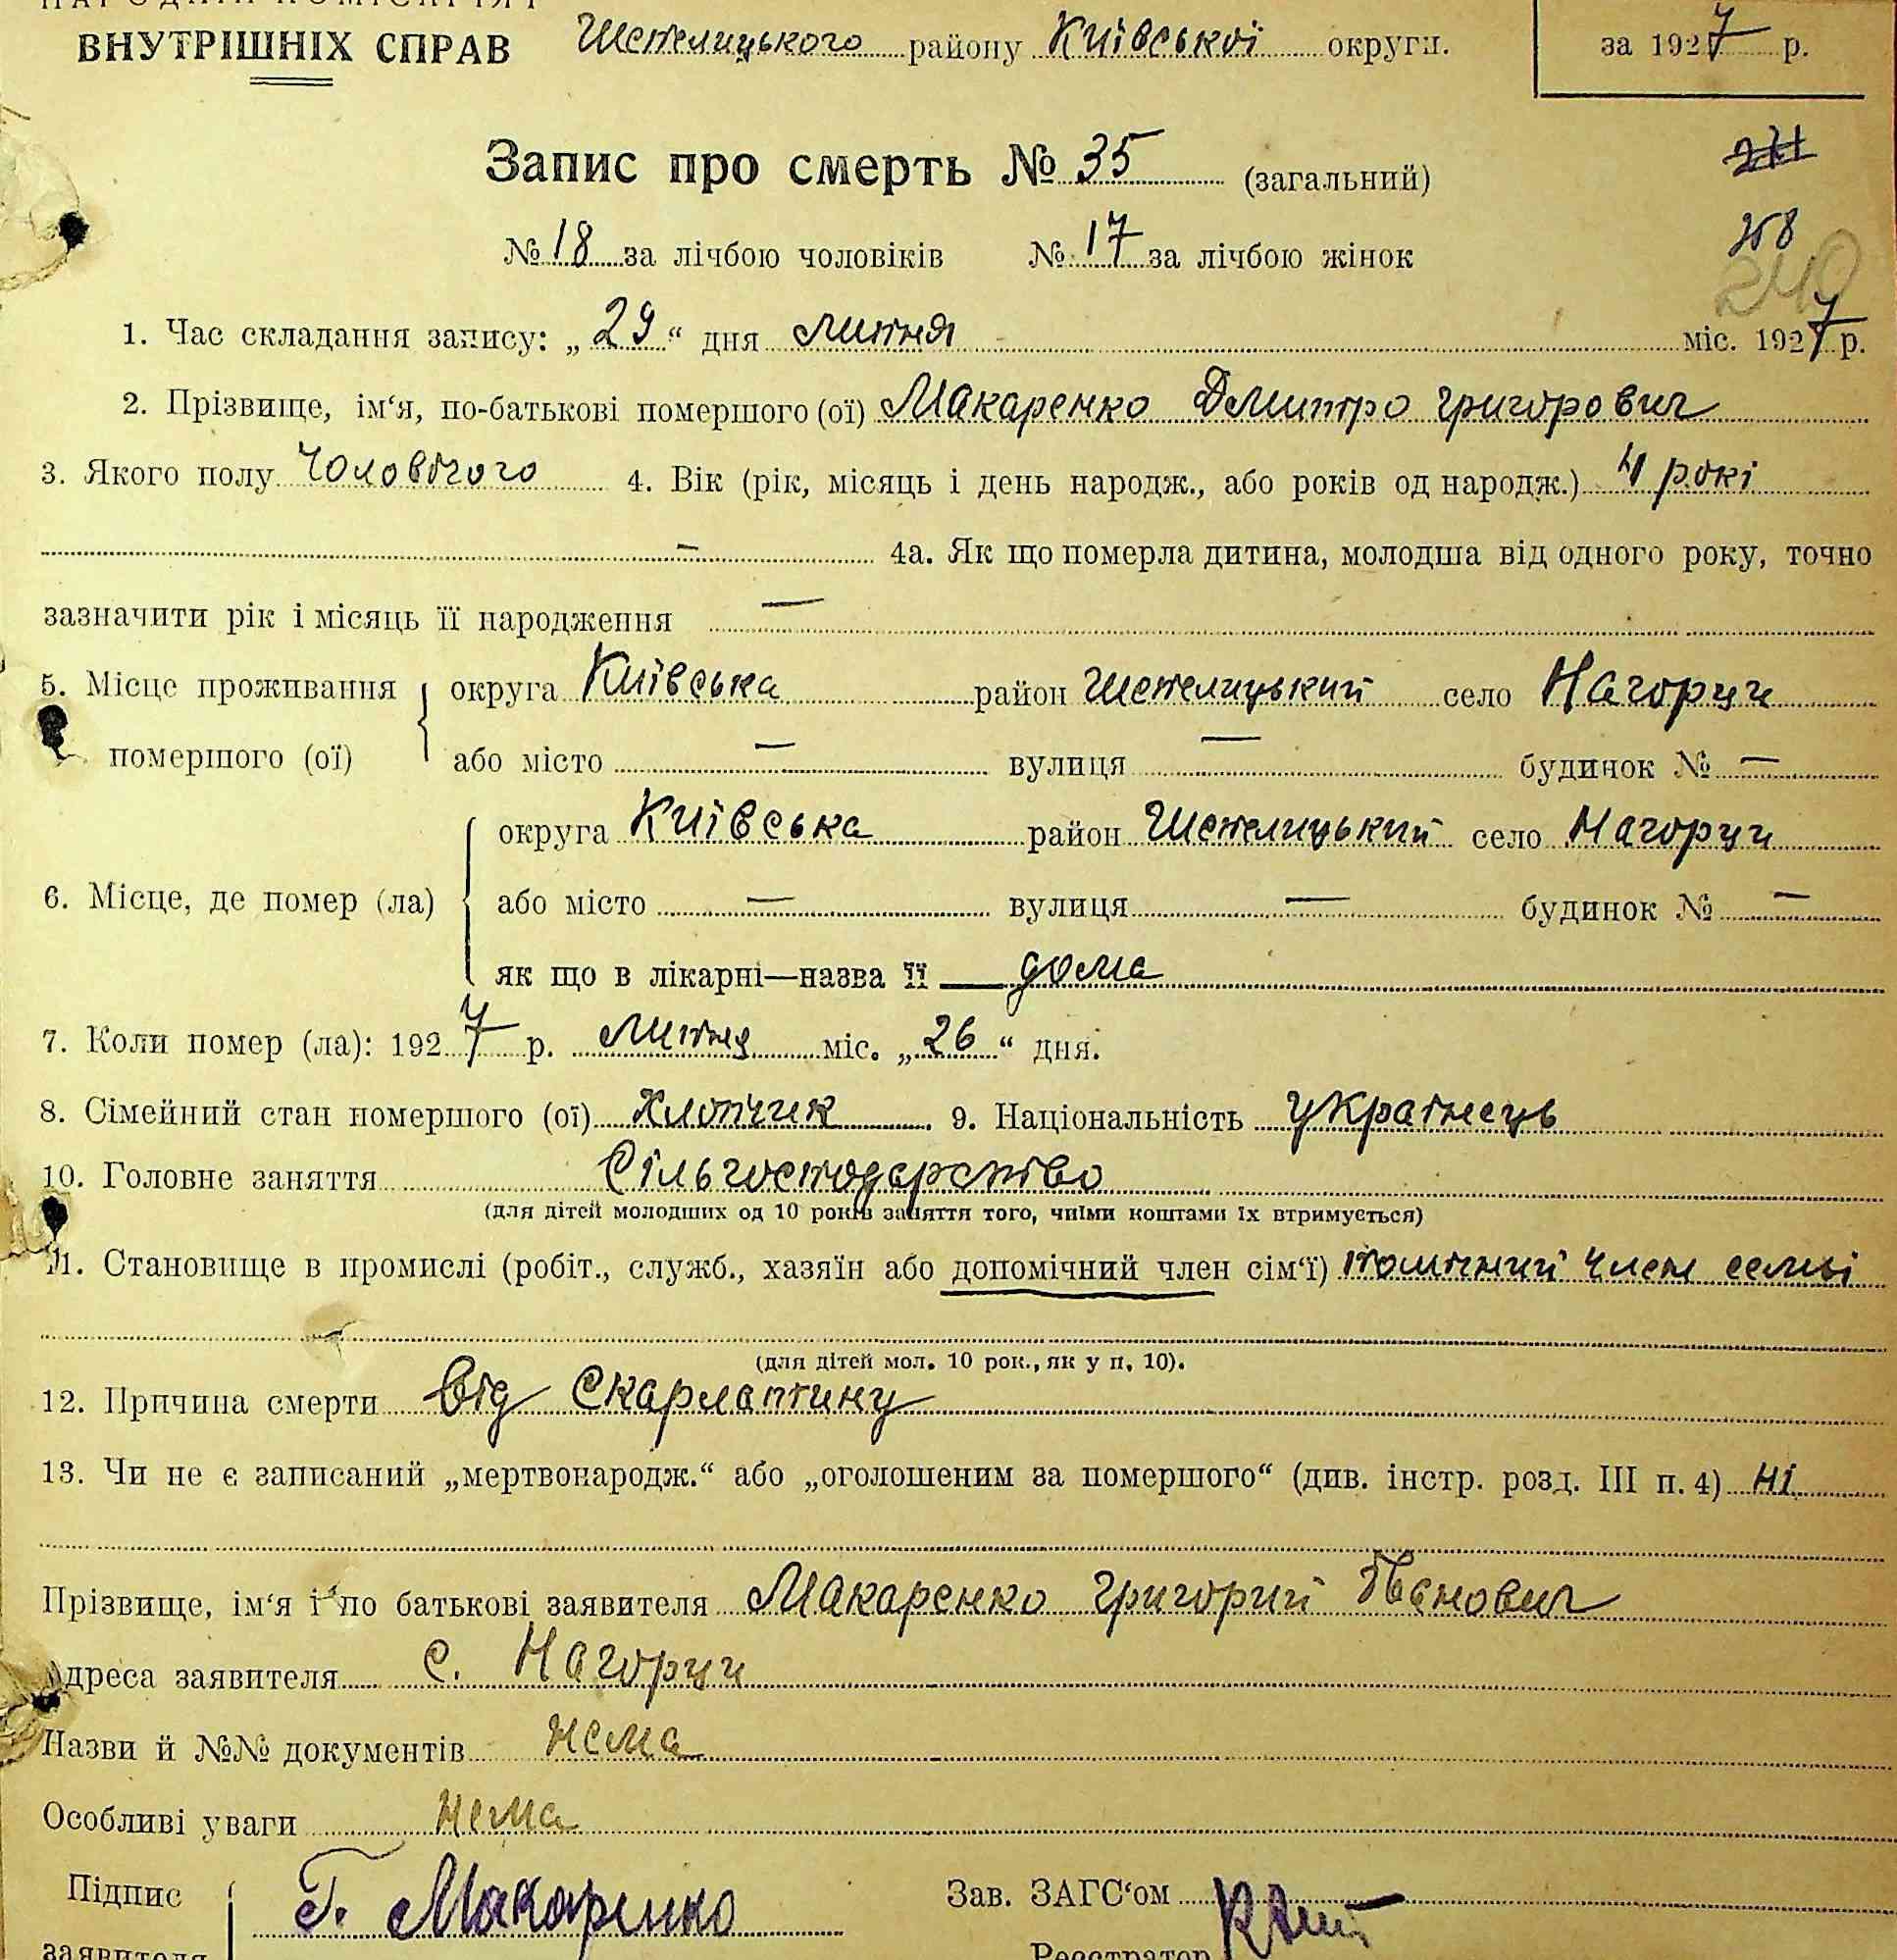 НАРОДНІЙ КОМІСАРІЯТ
ВНУТРІШНІХ СПРАВ Шепелицького району Київської округи. за 1927 р.
Запис про смерть № 35 (загальний)
№ 18 за лічбою чоловіків № 17 за лічбою жінок 258
240
1. Час складання запису: „29“ дня липня міс. 1927 р.
2. Прізвище, ім‘я, по-батькові помершого (ої) Макаренко Дмитро Григорович
3. Якого полу Чоловічого 4. Вік (рік, місяць і день народж., або років од народж.) 4 рокі
— 4а. Як що померла дитина, молодша від одного року, точно
зазначити рік і місяць її народження —
5. Місце проживання помершого (ої) округа Київська район Шепелицький село Нагорци
або місто — вулиця — будинок № —
6. Місце, де помер (ла) округа Київська район Шепелицький село Нагорци
або місто — вулиця — будинок № —
як що в лікарні—назва її — дома
7. Коли помер (ла): 1927 р. липня міс. „26“ дня.
8. Сімейний стан помершого (ої) хлопчик 9. Національність українець
10. Головне заняття Сільгосподарство
(для дітей молодших од 10 років заняття того, чиїми коштами їх втримується)
11. Становище в промислі (робіт., служб., хазяїн або допомічний член сім‘ї) помічний член семьі
(для дітей мол. 10 рок., як у п. 10).
12. Причина смерти від Скарлатину
13. Чи не є записаний „мертвонародж.“ або „оголошеним за помершого“ (див. інстр. розд. III п. 4) ні
Прізвище, ім‘я і по батькові заявителя Макаренко Григорий Іванович
Адреса заявителя с. Нагорци
Назви й №№ документів нема
Особливі уваги нема
Підпис заявителя Г. Макаренко Зав. ЗАГС‘ом
Реєстратор